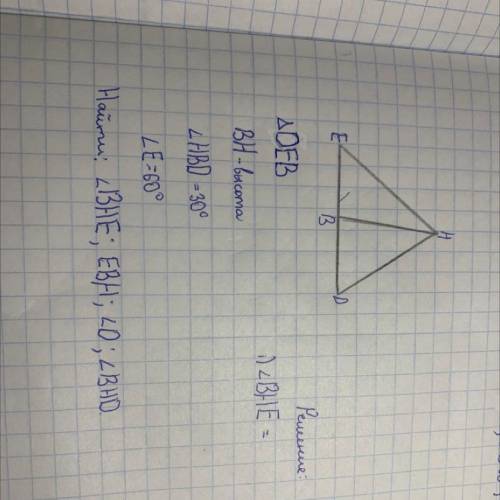 H
E B D
△DEB
BH - высота
∠HBD = 30°
∠E = 60°
Найти: ∠BHE; EBH; ∠D; ∠BHD
Решение:
1) ∠BHE =